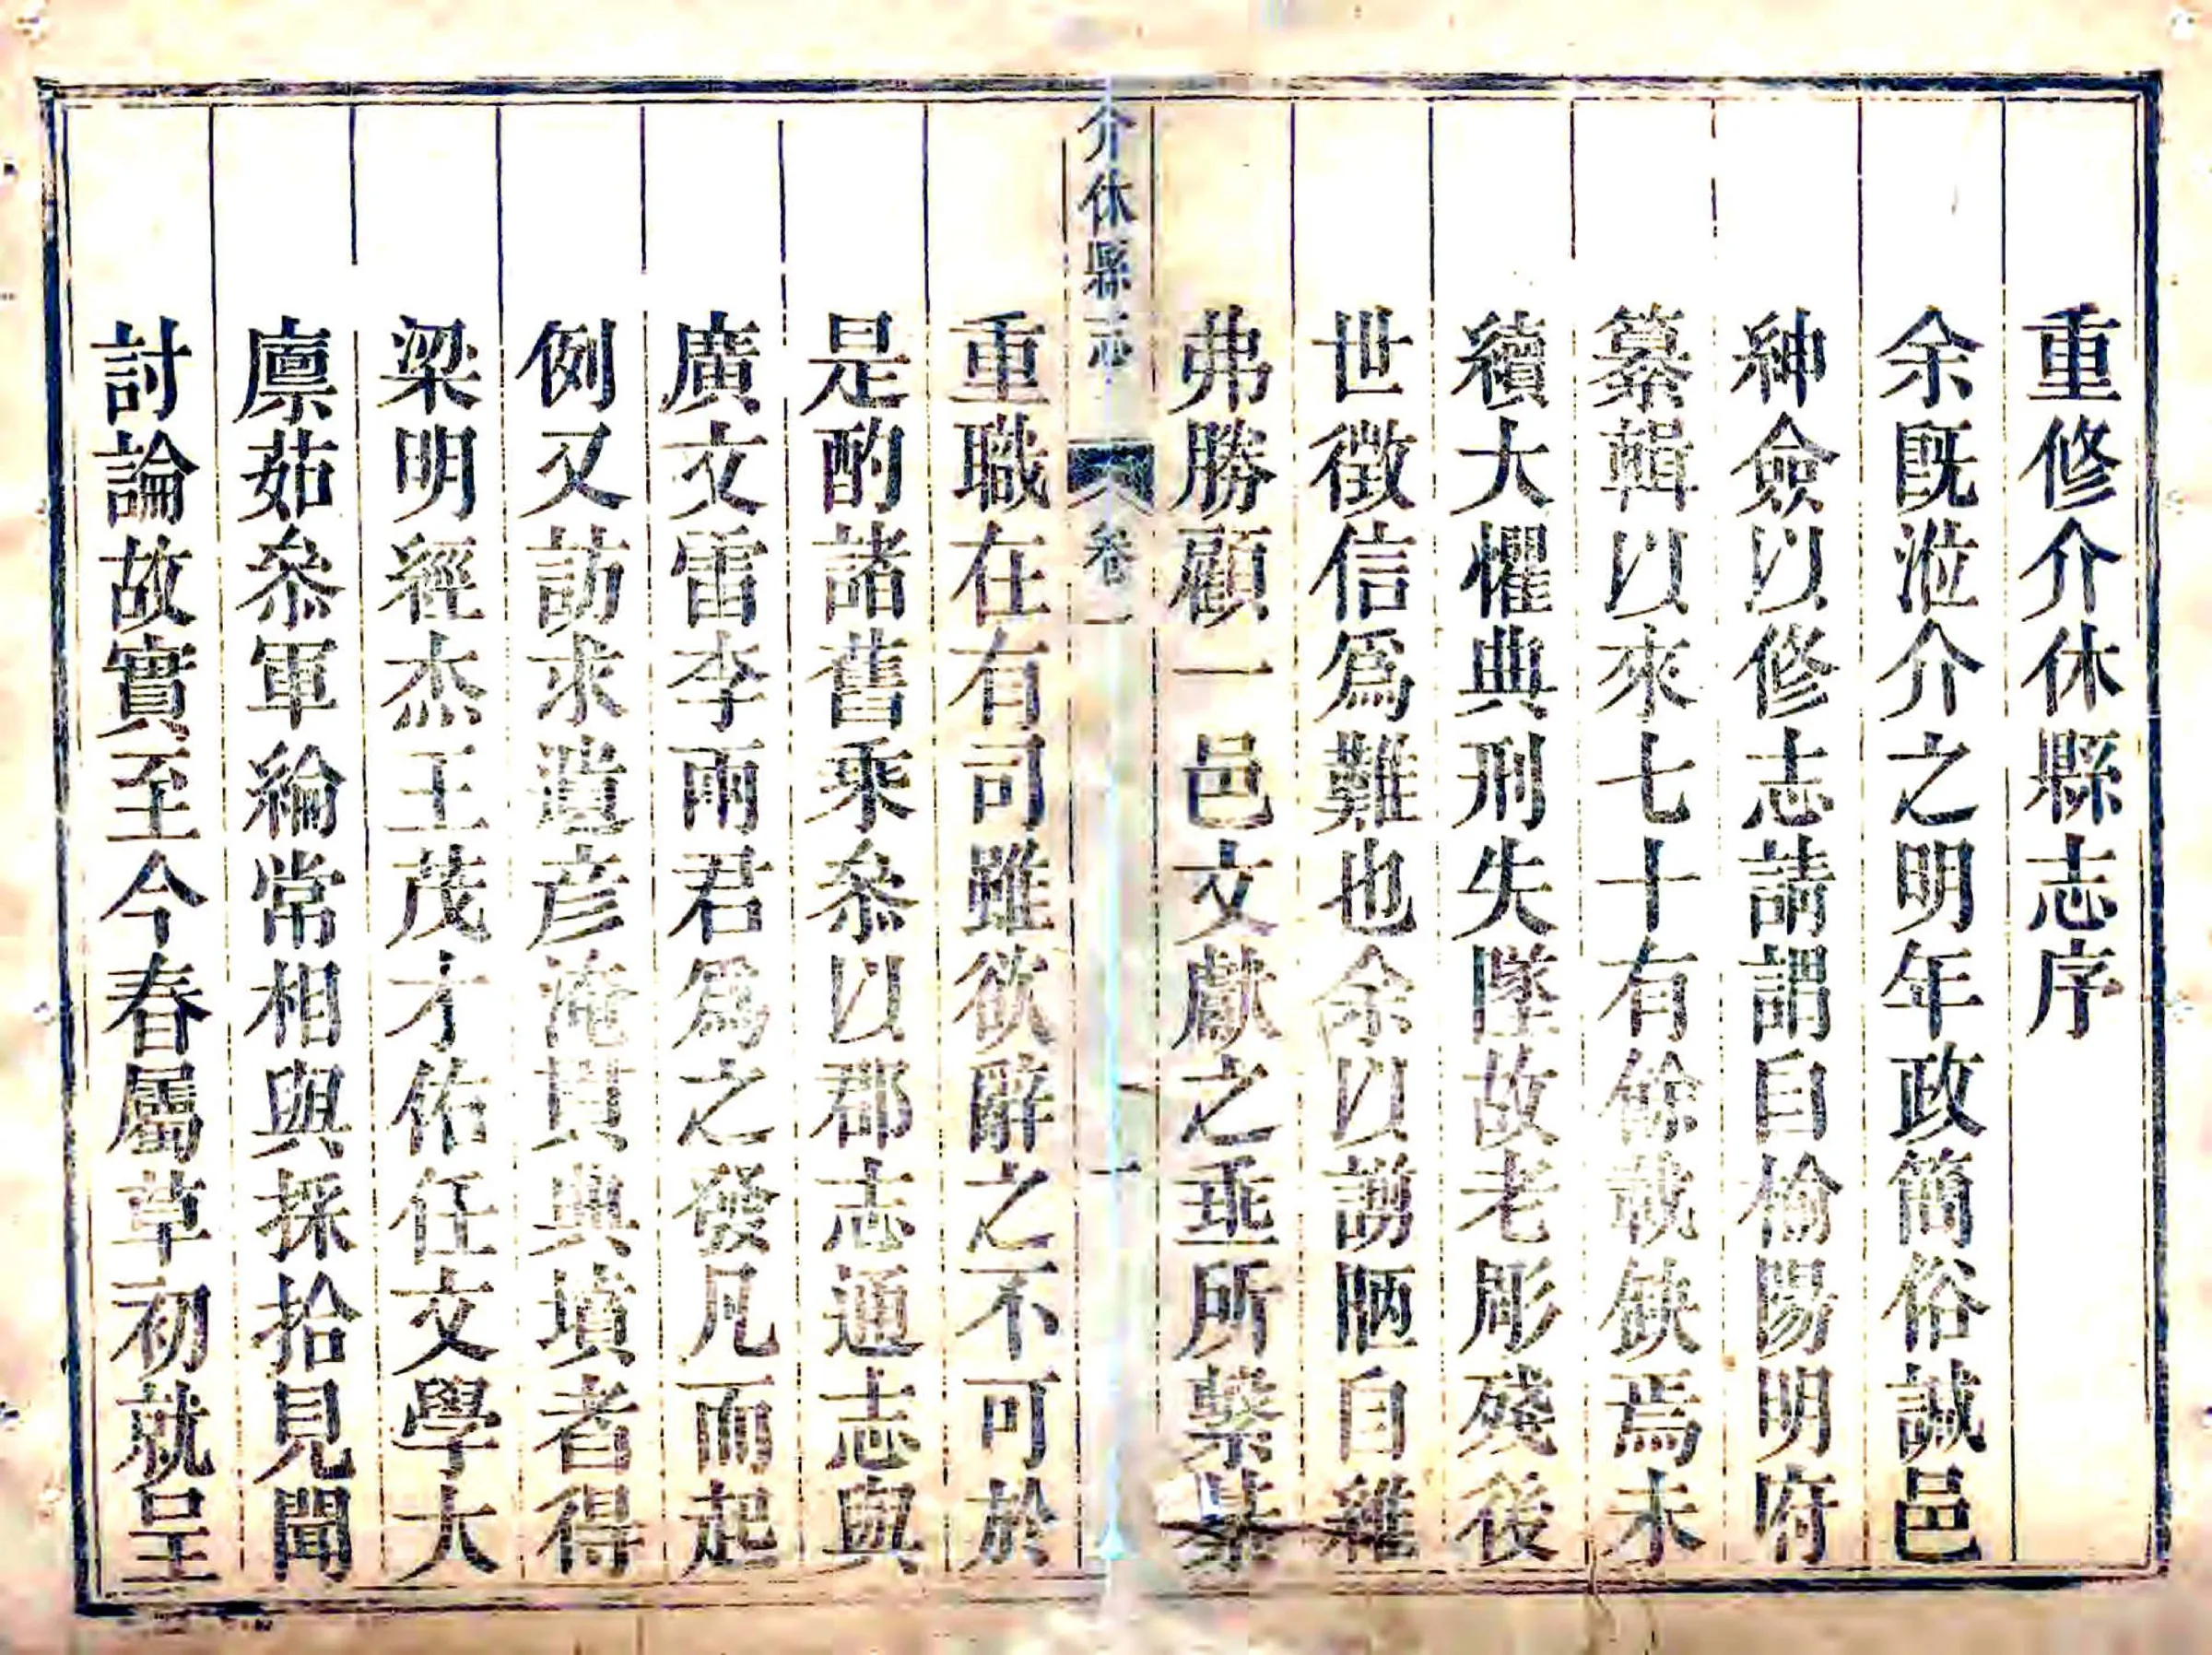 重修介休縣志序
余既涖介之明年政簡俗誠邑
紳僉以修志請謂自榆陽明府
纂輯以來七十有餘載缺焉未
續大懼典刑失墜故老彫殘後
世徵信爲難也余以謭陋自維
弗勝顧一邑文獻之垂所繫綦
介休縣志
卷一
一
重職在有司雖欲辭之不可於
是酌諸舊乘叅以郡志通志與
廣文雷李兩君爲之發凡而起
例又訪求遺彦淹貫典墳者得
梁明經杰王茂才佑任文學大
廪茹叅軍綸常相與採拾見聞
討論故實至今春屬草初就呈